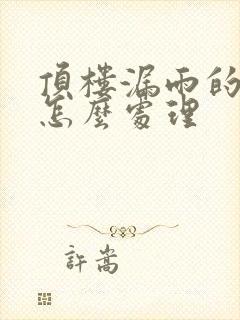 頂樓漏雨的
怎麼處理
許嵩